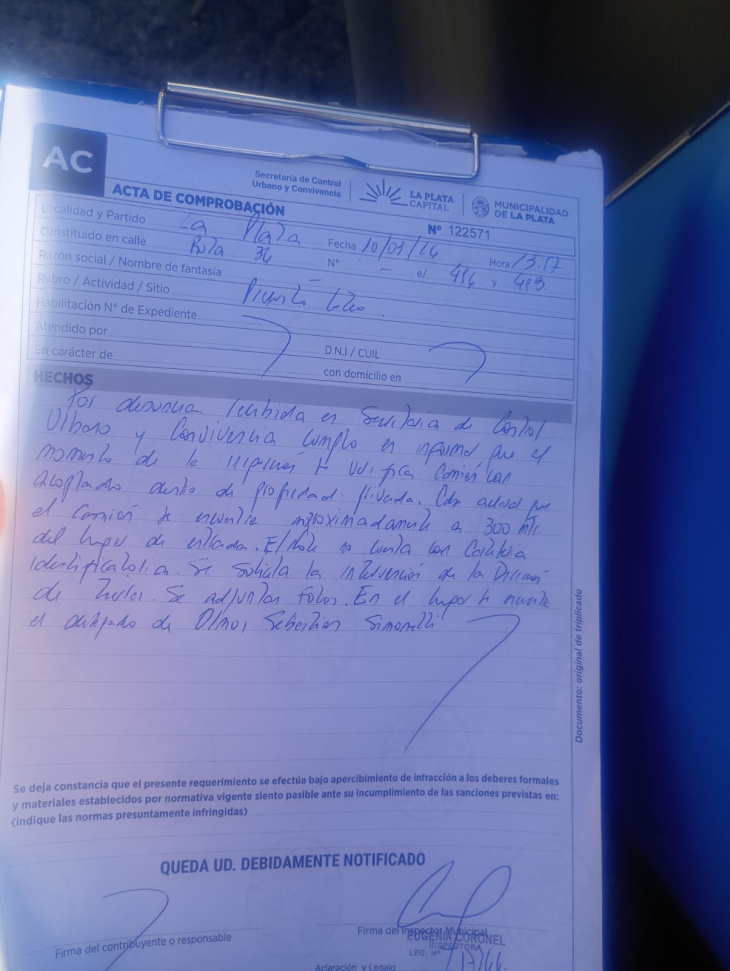 AC
Secretaría de Control
Urbano y Convivencia
LA PLATA
CAPITAL
MUNICIPALIDAD
DE LA PLATA
ACTA DE COMPROBACIÓN
Nº 122571
Localidad y Partido La Plata Fecha Hora
Constituido en calle Ruta 36 Nº - e/ y
Razón social / Nombre de fantasía
Rubro / Actividad / Sitio
Habilitación N° de Expediente
Atendido por D.N.I / CUIL
En carácter de con domicilio en
HECHOS
Por denuncia recibida en Secretaria de Control
Urbano y Convivencia cumplo en informar que el
momento de la se verifica Camión con
acoplado dentro de propiedad privada. Cabe que
el camión se encuentra aproximadamente a 300 mtr
del lugar de entrada. no cuenta con
identificatoria. Se solicita la intervención de la
de Se adjuntan fotos. En el lugar se
el delegado de Olmos Sebastian Simonelli
Se deja constancia que el presente requerimiento se efectúa bajo apercibimiento de infracción a los deberes formales
y materiales establecidos por normativa vigente siento pasible ante su incumplimiento de las sanciones previstas en:
(indique las normas presuntamente infringidas)
QUEDA UD. DEBIDAMENTE NOTIFICADO
Firma del contribuyente o responsable
Firma del Inspector Municipal
EUGENIA CORONEL
INSPECTORA
LEG. Nº
Aclaración y Legajo
Documento: original de triplicado